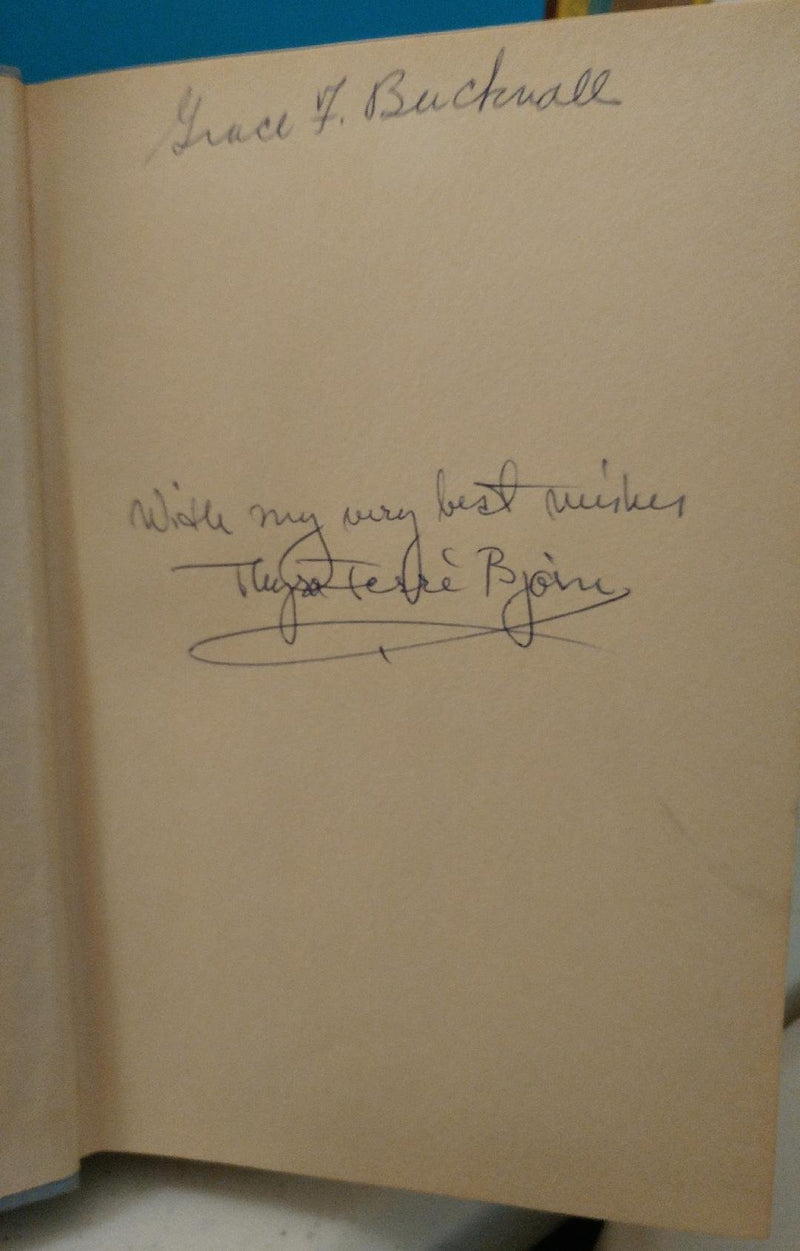 Grace F. Bucknall
With my very best wishes
Thyra Ferrè Björn